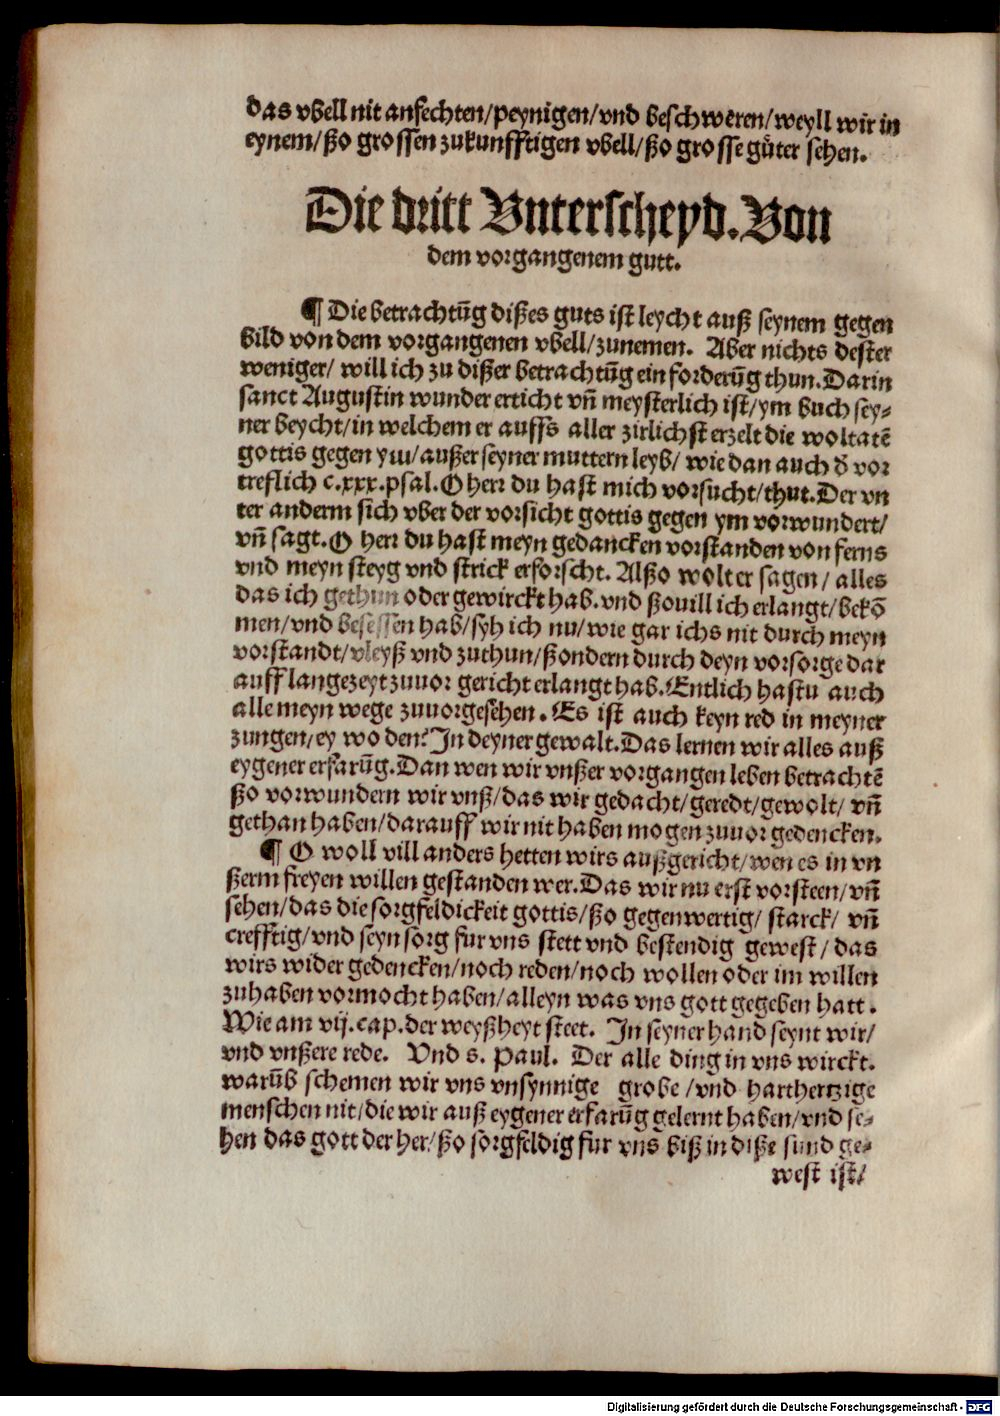 das vbell nit anfechten/peynigen/vnd beschweren/weyll wir in
eynem/ßo grossen zukunfftigen vbell/ßo grosse guͤter sehen.
Die dritt Vnterscheyd. Von
dem vorgangenem gutt.
¶ Die betrachtūg dißes guts ist leycht auß seynem gegen
bild von dem vorgangenen vbell/zunemen. Aber nichts dester
weniger/ will ich zu dißer betrachtūg ein forderūg thun. Darin
sanct Augustin wunder erticht vñ meysterlich ist/ym buch sey-
ner beycht/in welchem er auffs aller zirlichst erzelt die woltatē
gottis gegen ym/außer seyner muttern leyb/ wie dan auch d̄ vor
treflich c.xxx.psal. O herr du hast mich vorsucht/thut. Der vn
ter anderm sich vber der vorsicht gottis gegen ym vorwundert/
vñ sagt. O herr du hast meyn gedancken vorstanden von ferns
vnd meyn steyg vnd strick erforscht. Alßo wolt er sagen/ alles
das ich gethun oder gewirckt hab. vnd ßouill ich erlangt/bekō
men/vnd besessen hab/syh ich nu/wie gar ichs nit durch meyn
vorstandt/vleyß vnd zuthun/ßondern durch deyn vorsorge dar
auff langezeyt zuuor gericht erlangt hab. Entlich hastu auch
alle meyn wege zuuorgesehen. Es ist auch keyn red in meyner
zungen/ey wo den? In deyner gewalt. Das lernen wir alles auß
eygener erfarūg. Dan wen wir vnßer vorgangen leben betrachtē
ßo vorwundern wir vnß/das wir gedacht/geredt/gewolt/ vñ
gethan haben/darauff wir nit haben mogen zuuor gedencken.
¶ O woll vill anders hetten wirs außgericht/wen es in vn
ßerm freyen willen gestanden wer. Das wir nu erst vorsteen/vñ
sehen/das die sorgfeldickeit gottis/ßo gegenwertig/ starck/ vñ
crefftig/vnd seyn sorg fur vns stett vnd bestendig gewest/das
wirs wider gedencken/noch reden/noch wollen oder im willen
zuhaben vormocht haben/alleyn was vns gott gegeben hatt.
Wie am vij.cap.der weyßheyt steet. In seyner hand seynt wir/
vnd vnßere rede. Vnd s. Paul. Der alle ding in vns wirckt.
warūb schemen wir vns vnsynnige grobe/vnd harthertzige
menschen nit/die wir auß eygener erfarūg gelernt haben/vnd se-
hen das gott der her/ßo sorgfeldig fur vns biß in diße stund ge-
west ist/
Digitalisierung gefördert durch die Deutsche Forschungsgemeinschaft - DFG